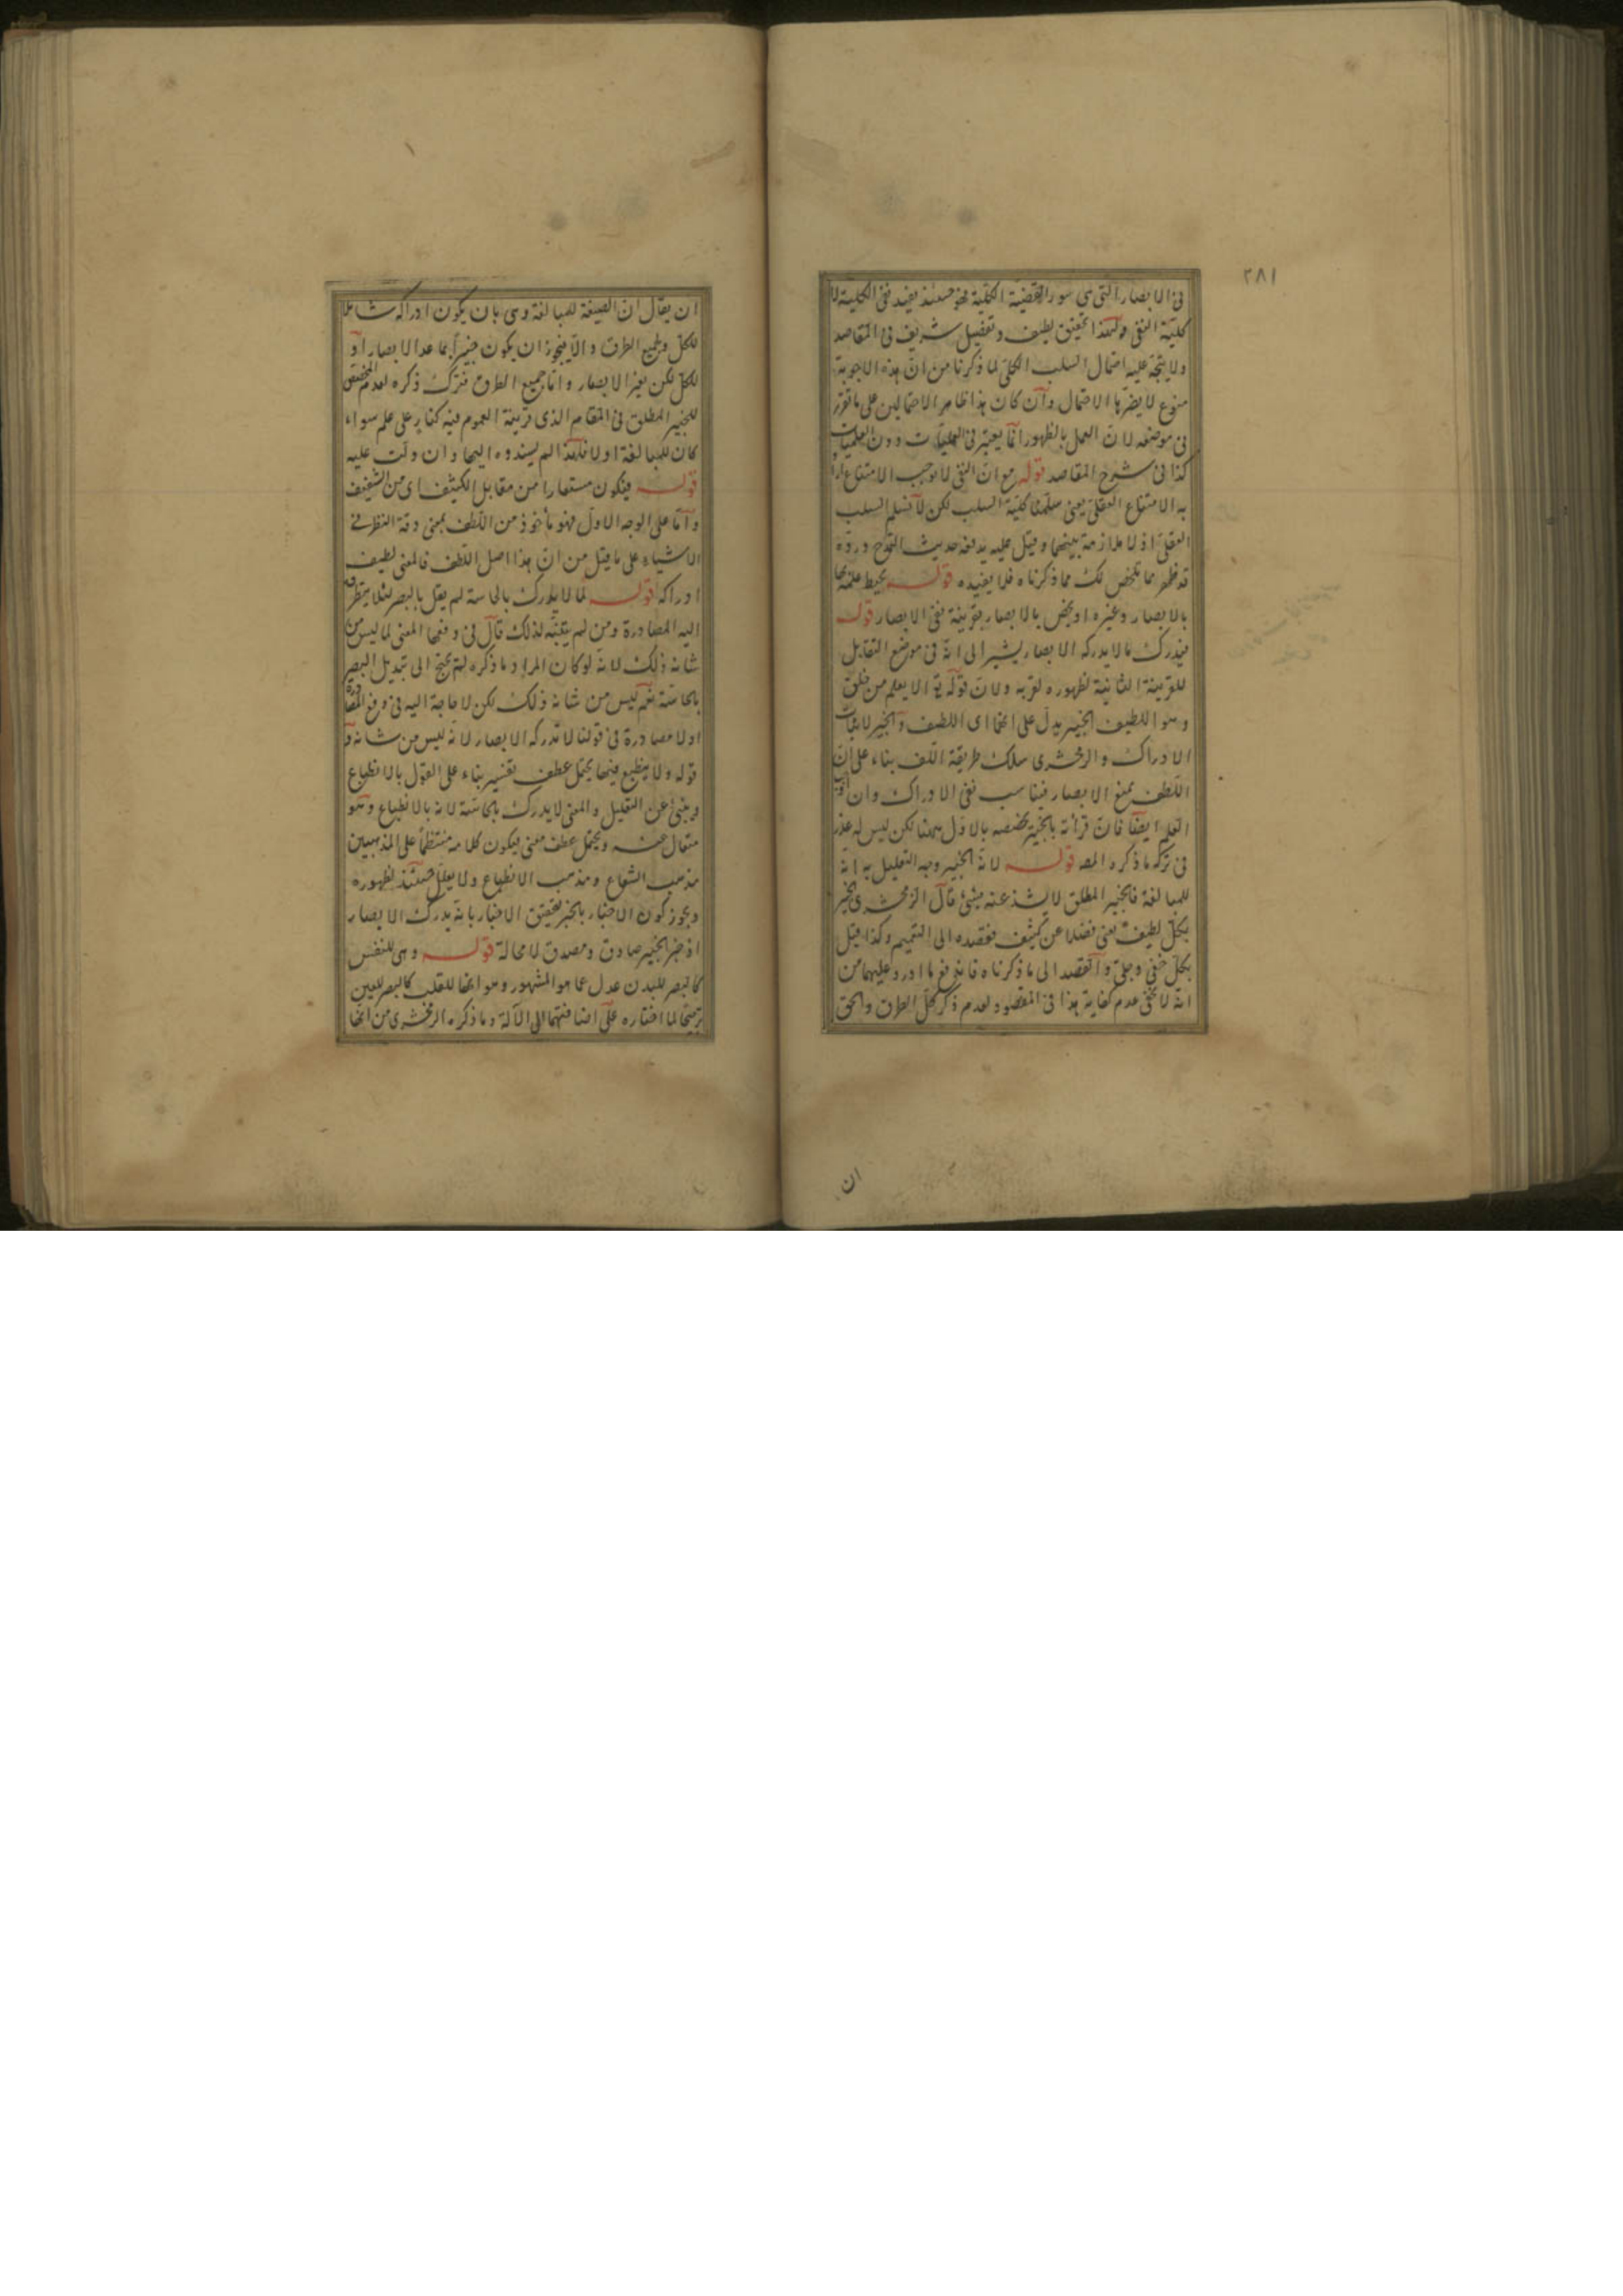 ٢٨١
فى الابصار التى هى سور القضية الكلية فهو حينئذ يفيد نفى الكلية لا
كلية النفى ولهذا تحقيق لطيف وتفصيل شريف فى المقاصد
ولا يتجه عليه احتمال السلب الكلى لما ذكرنا من ان هذه الاجوبة
منوع لا يضر بها الاحتمال وان كان هذا ظاهر الاحتمالين على ما تقرر
فى موضعه لان العمل بالظهور انما يعتبر فى العمليات دون العلميات
كذا فى شرح المقاصد قوله مع ان النفى لا يوجب الامتناع اراد
به الامتناع العقلى يعنى سلمنا كلية السلب لكن لا نسلم السلب
العقلى اذ لا ملازمة بينهما وقيل عليه يدفعه حديث التمدح ورده
قد ظهر مما تلخص لك مما ذكرناه فلا يفيده قوله يحيط علمه بها
بالابصار وغيره او يخص بالابصار بقرينة نفى الابصار قوله
فيدرك ما لا يدركه الابصار يشير الى انه فى موضع التقابل
للقرينة الثانية لظهوره لقربه ولان قوله تع الا يعلم من خلق
وهو اللطيف الخبير يدل على انهما اى اللطيف والخبير لاثبات
الادراك والزمخشرى سلك طريقة اللف بناء على ان
اللطف يمنع الابصار فيناسب نفى الادراك وان
العلم ايضا فان قرانه بالخبير يخصصه بالاول ههنا لكن ليس له عذر
فى تركه ما ذكره المصه قوله لانه الخبير وجه التعليل به انه
للمبالغة فالخبير المطلق لا يشذ عنه شئ قال الزمخشرى الخبير
بكل لطيف يعنى فضلا عن كثيف فقصده الى التتميم وكذا قيل
بكل خفى وجلى والقصد الى ما ذكرناه فاندفع ما اورد عليهما من
انه لا يخفى عدم كفاية هذا فى المقصود لعدم ذكر كل الطرق والحق
ان
ان يقال ان الصيغة للمبالغة وهى بان يكون ادراكه شاملا
للكل وبجميع الطرق والا فيجوز ان يكون خبيرا بما عدا الابصار او
للكل لكن بغير الابصار واما جميع الطرق فترك ذكره لعدم المخصص
للخبير المطلق فى المقام الذى قرينة العموم فيه كنار على علم سواء
كان للمبالغة او لا فلهذا لم يسندوه اليها وان دلت عليه
قوله فيكون مستعارا من مقابل الكثيف اى من الشفيف
واما على الوجه الاول فهو ماخوذ من اللطف بمعنى دقة النظر فى
الاشياء على ما قيل من ان هذا اصل اللطف فالمعنى لطيف
ادراكه قوله لما لا يدرك بالحاسة لم يقل بالبصر لئلا يتطرق
اليه المصادرة ومن لم يتنبه لذلك قال فى دفعها المعنى لما ليس من
شانه ذلك لانه لو كان المراد ما ذكره لم يحتج الى تبديل البصر
بالحاسة نعم ليس من شانه ذلك لكن لا حاجة اليه فى دفع المصادرة
اولا مصادرة فى قولنا لا تدركه الابصار لانه ليس من شانه و
قوله ولا ينطبع فيها يحتمل عطف تفسير بناء على القول بالانطباع
وينبئ عن التعليل والمعنى لا يدرك بالحاسة لانه بالانطباع وهو
متعال عنه ويحتمل عطف معنى فيكون كلامه منتظما على المذهبين
مذهب الشعاع ومذهب الانطباع ولا يعلل حينئذ لظهوره
ويجوز كون الاخبار بالخبر لتحقق الاخبار بانه يدرك الابصار
اذ خبر الخبير صادق ومصدق لا محالة قوله وهى للنفس
كالبصر للبدن عدل عما هو المشهور وهو انها للقلب كالبصر للعين
ترجيحا لما اختاره على اضافتهما الى الآلة وما ذكره الزمخشرى من انها